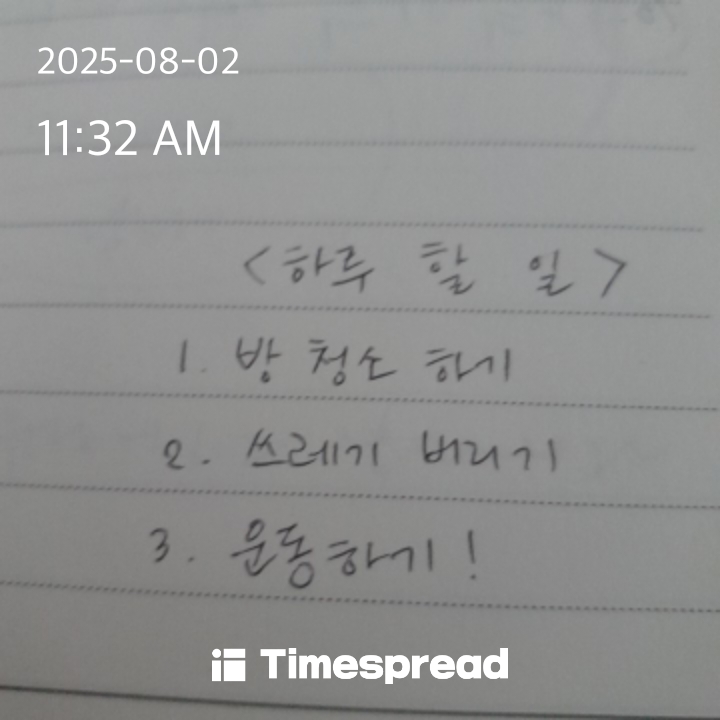 2025-08-02
11:32 AM
<하루 할 일>
1. 방 청소 하기
2. 쓰레기 버리기
3. 운동하기!
Timespread